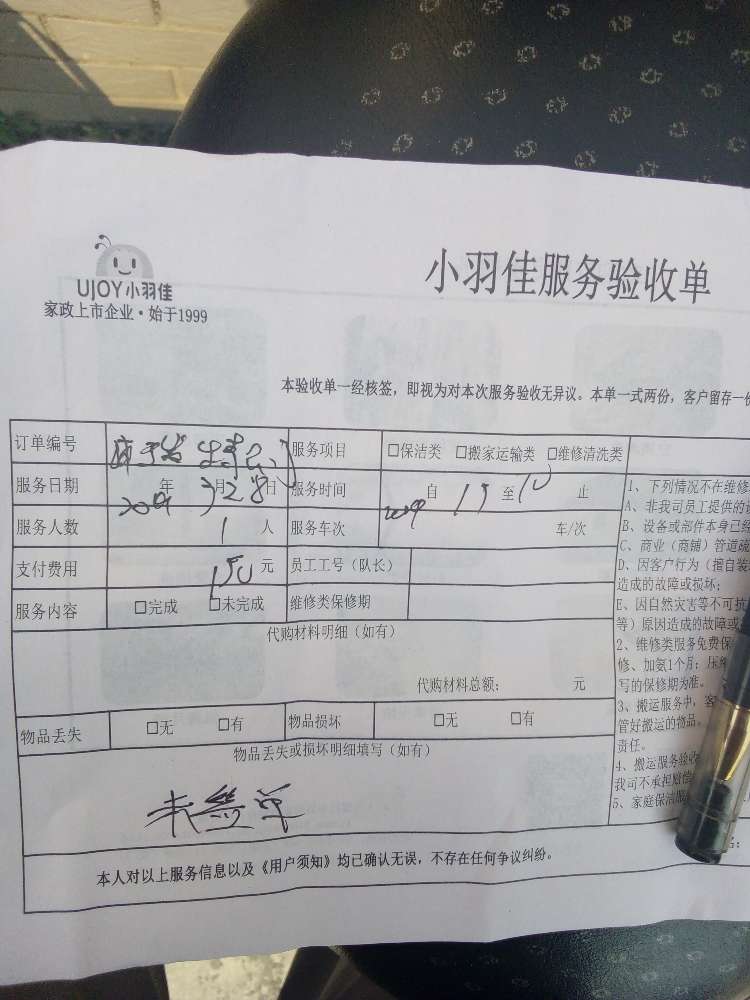 小羽佳服务验收单
UJOY小羽佳
家政上市企业·始于1999
本验收单一经核签，即视为对本次服务验收无异议。本单一式两份，客户留存一份
订单编号
服务项目 □保洁类 □搬家运输类 □维修清洗类
服务日期 2019年 3月 28日 服务时间 自 15 至 10 止
服务人数 1 人 服务车次 车/次
支付费用 150 元 员工工号（队长）
服务内容 □完成 □未完成 维修类保修期
代购材料明细（如有）
代购材料总额： 元
物品丢失 □无 □有 物品损坏 □无 □有
物品丢失或损坏明细填写（如有）
未签单
本人对以上服务信息以及《用户须知》均已确认无误，不存在任何争议纠纷。
1、下列情况不在维修
A、非我司员工提供的
B、设备或部件本身已经
C、商业（商铺）管道疏
D、因客户行为（擅自装
造成的故障或损坏；
E、因自然灾害等不可抗
等）原因造成的故障或
2、维修类服务免费保
修、加氨1个月；压缩
写的保修期为准。
3、搬运服务中，客
管好搬运的物品。
责任。
4、搬运服务验收
我司不承担赔偿
5、家庭保洁服
名：